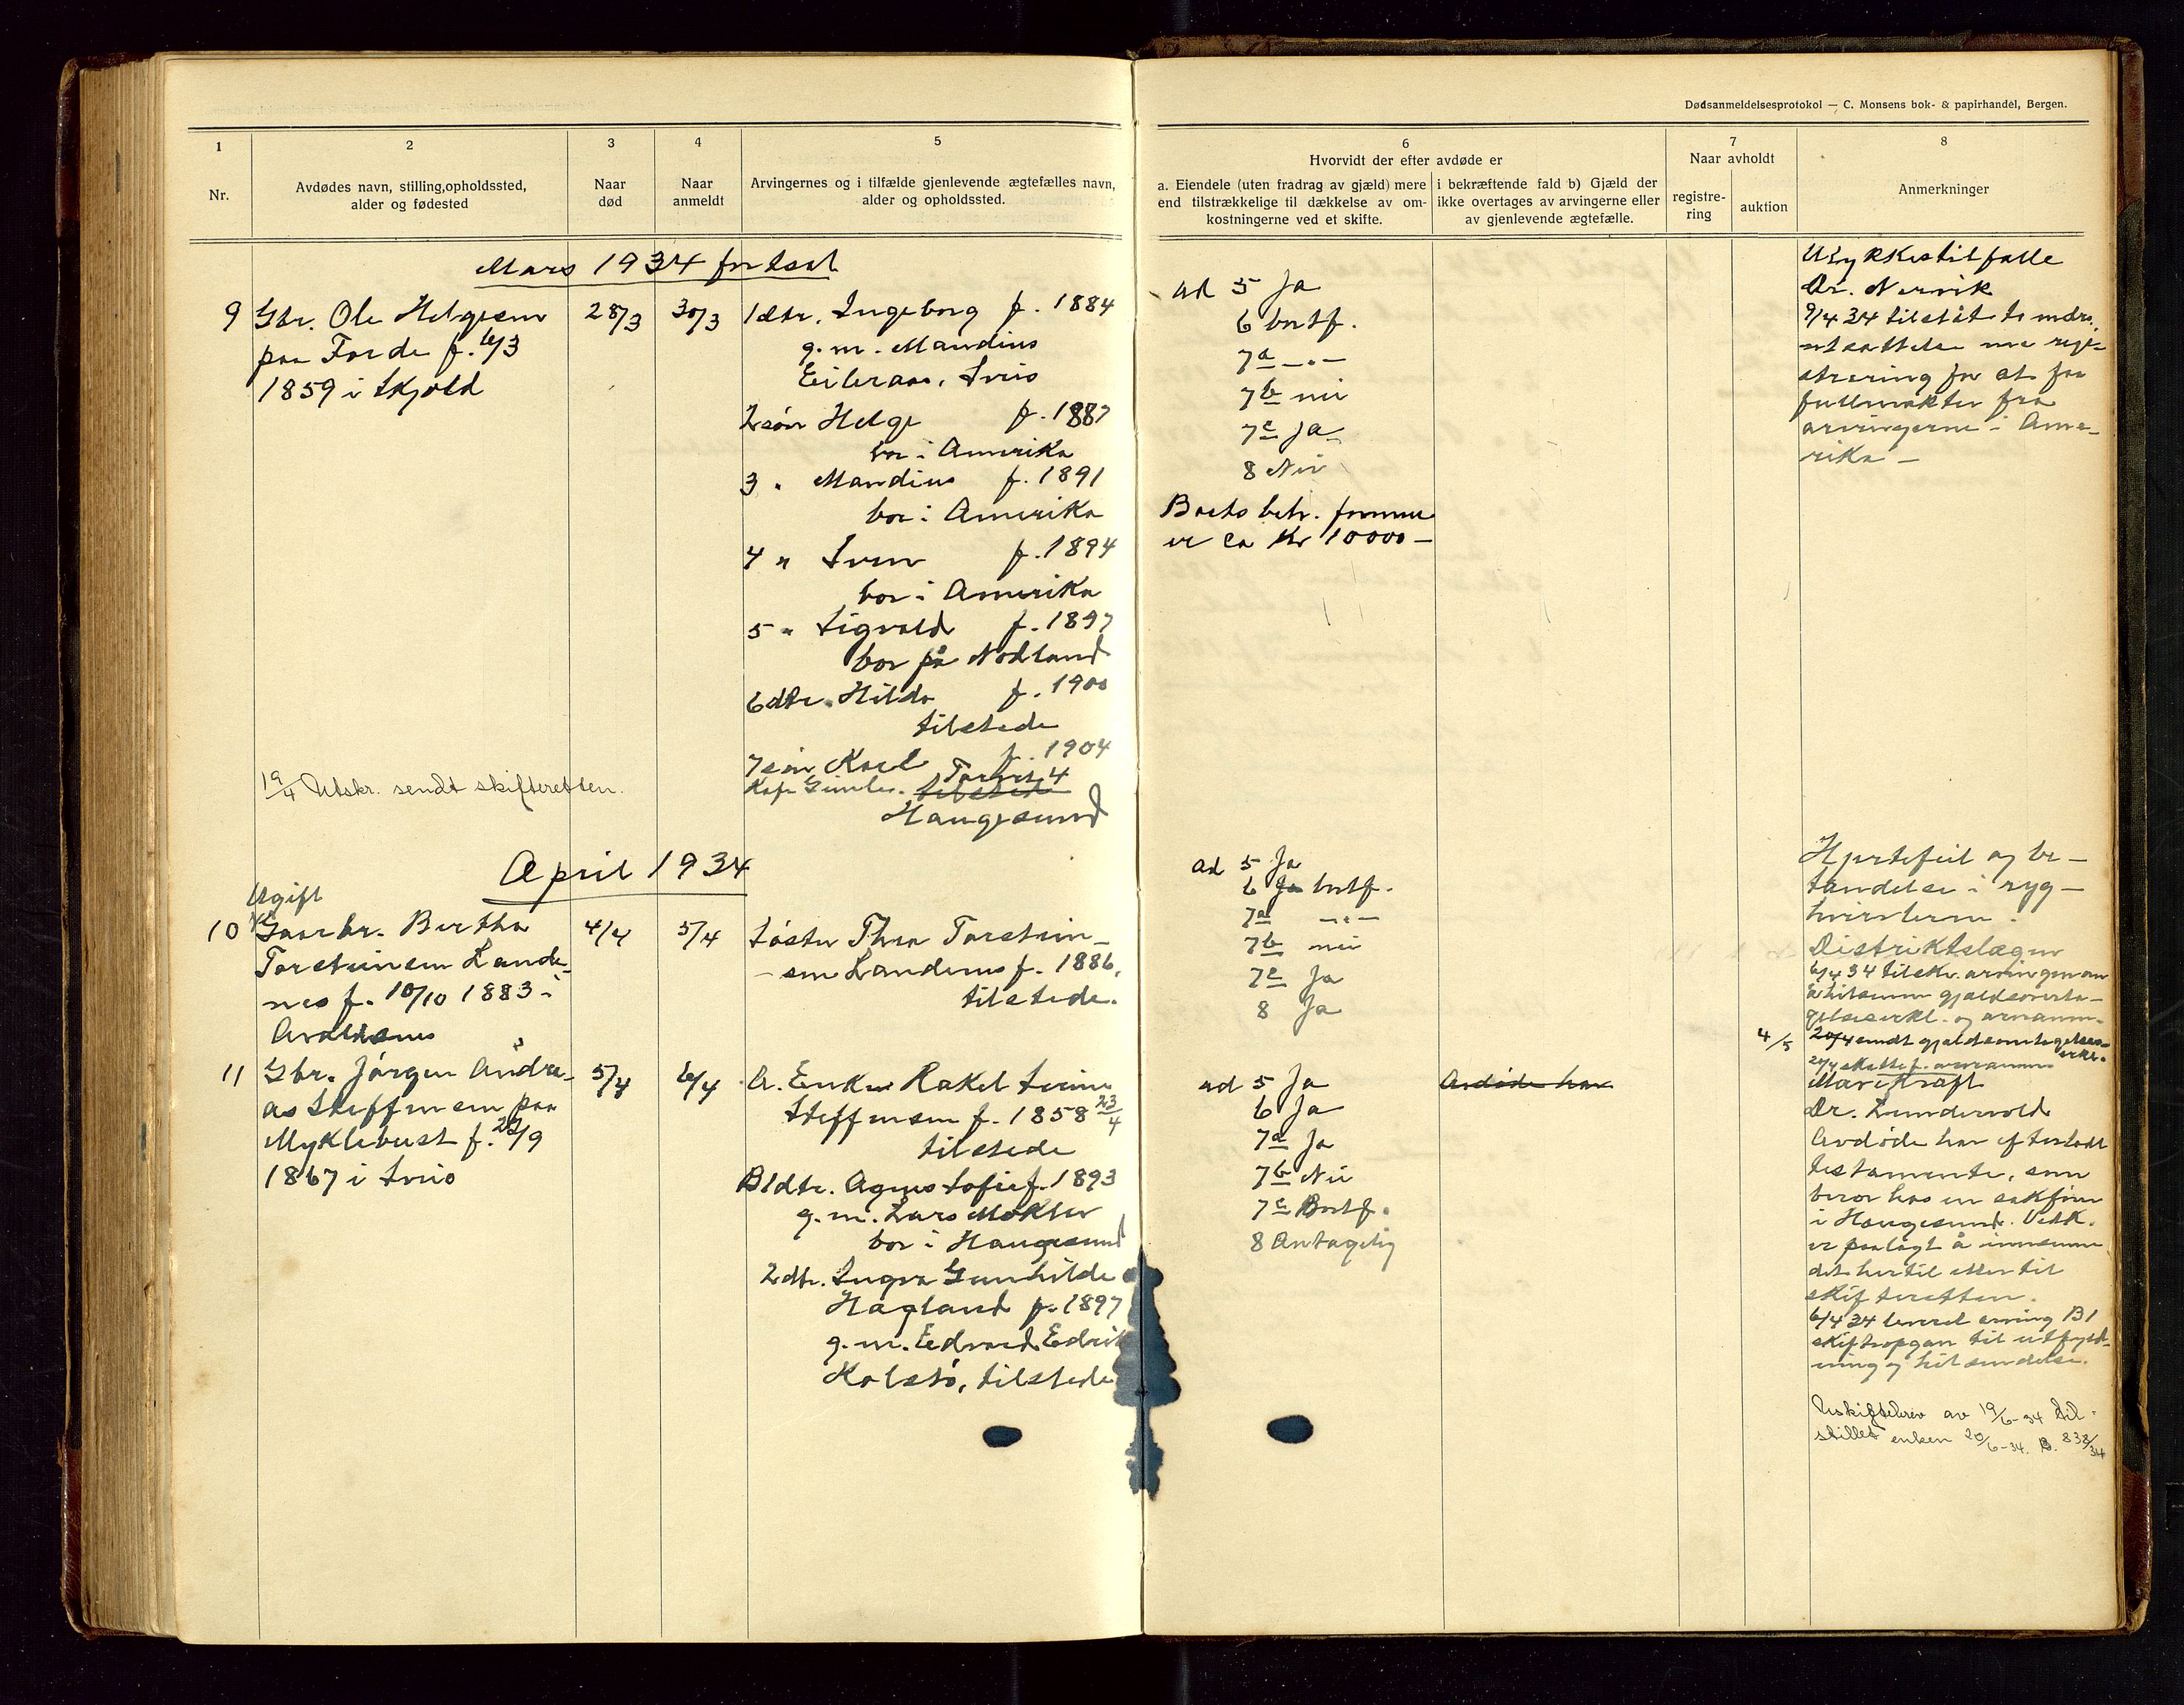 Dødsanmeldelsesprotokol — C. Monsens bok- & papirhandel, Bergen.
1
Nr.
2
Avdødes navn, stilling, opholdssted,
alder og fødested
3
Naar
død
4
Naar
anmeldt
5
Arvingernes og i tilfælde gjenlevende ægtefælles navn,
alder og opholdssted.
6
Hvorvidt der efter avdøde er
a. Eiendele (uten fradrag av gjæld) mere
end tilstrækkelige til dækkelse av om-
kostningerne ved et skifte.
i bekræftende fald b) Gjæld der
ikke overtages av arvingerne eller
av gjenlevende ægtefælle.
7
Naar avholdt
registre-
ring
auktion
8
Anmerkninger
Mars 1934 fortsat
9
Gbr. Ole Helgesen
paa Førde f. 6/3
1859 i Skjold
28/3
30/3
1 dtr. Ingeborg f. 1884
g.m. Mandius
Eileraas, Sveio
2 søn Helge f. 1887
bor i Amerika
3 " Mandius f. 1891
bor i Amerika
4 " Sven f. 1894
bor i Amerika
5 " Sigvald f. 1897
bor på Nodland
6 dtr. Hilda f. 1900
tilstede
7 søn Karl f. 1904
tilstede
Haugesund
19/4 Utskr. sendt skifteretten.
ad 5 Ja
6 bortf.
7a —"—
7b nei
7c Ja
8 Nei
Boets betr. formue
er ca Kr 10000 —
Ulykkestilfælle
Dr. Nervik
9/4 34 tilstått to mdrs.
utsættelse med regi-
strering for at faa
fullmakter fra
arvingerne i Ame-
rika —
April 1934
Ugift
10
Gaardbr. Bertha
Torsteinsen Lande-
nes f. 10/10 1883 i
Avaldsnes
4/4
5/4
Søster Thea Torstein-
sen Landenes f. 1886,
tilstede.
ad 5 Ja
6 Ja bortf.
7a —"—
7b nei
7c Ja
8 Ja
4/5
Hjertefeil og be-
tændelse i ryg-
hvirvlerne.
Distriktslægen
6/4 34 tilskr. arvingen om
å hitsende gjældsoverta-
gelseserkl. og
20/4 sendt gjældsovertagelses-
erkl.
11
Gbr. Jørgen Andre-
as Steffensen paa
Myklebust f. 29/9
1867 i Sveio
5/4
6/4
A. Enke Rakel Serine
Steffensen f. 1858 23/4
tilstede
B 1 dtr. Agnes Sofie f. 1893
g.m. Lars Møkster
bor i Haugesund
2 dtr. Ingva Gunhilde
Hagland f. 1897
g.m. Edvard Edrik
Kolstø, tilstede
ad 5 Ja
6 Ja
7a Ja
7b Nei
7c Bortf.
8 Antagelig
Avdøde har
Mavekræft
Dr. Lundervold
Avdøde har efterladt
testamente, som
beror hos en sakfører
i Haugesund. Vedk.
er paalagt å innsende
det hertil eller til
skifteretten.
6/4 34 leveret arving B1
skifteopgave til utfyld-
ning og hitsendelse.
Uskiftebrev av 19/6-34 til-
stillet enken 20/6-34. B. 838/34